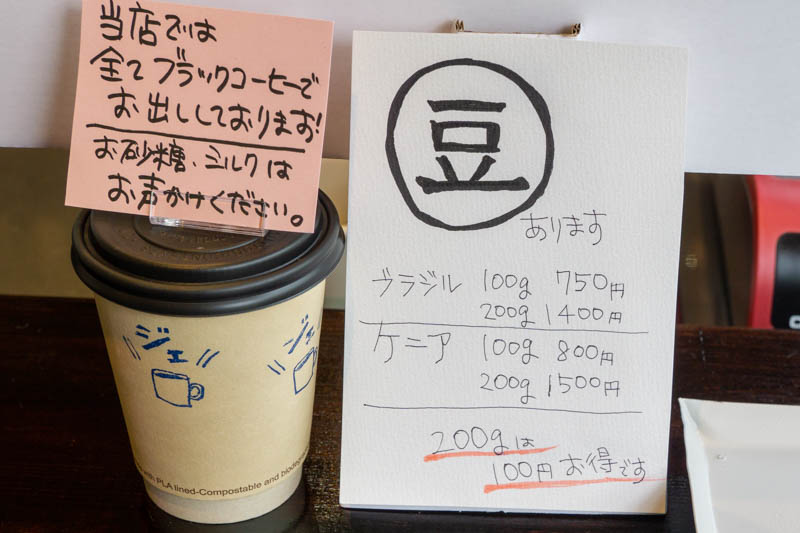 当店では
全てブラックコーヒーで
お出ししております!
お砂糖、ミルクは
お声かけください。
豆
あります
ブラジル 100g 750円
200g 1400円
ケニア 100g 800円
200g 1500円
200gは
100円お得です
ジェ
ジェ
with PLA lined-Compostable and